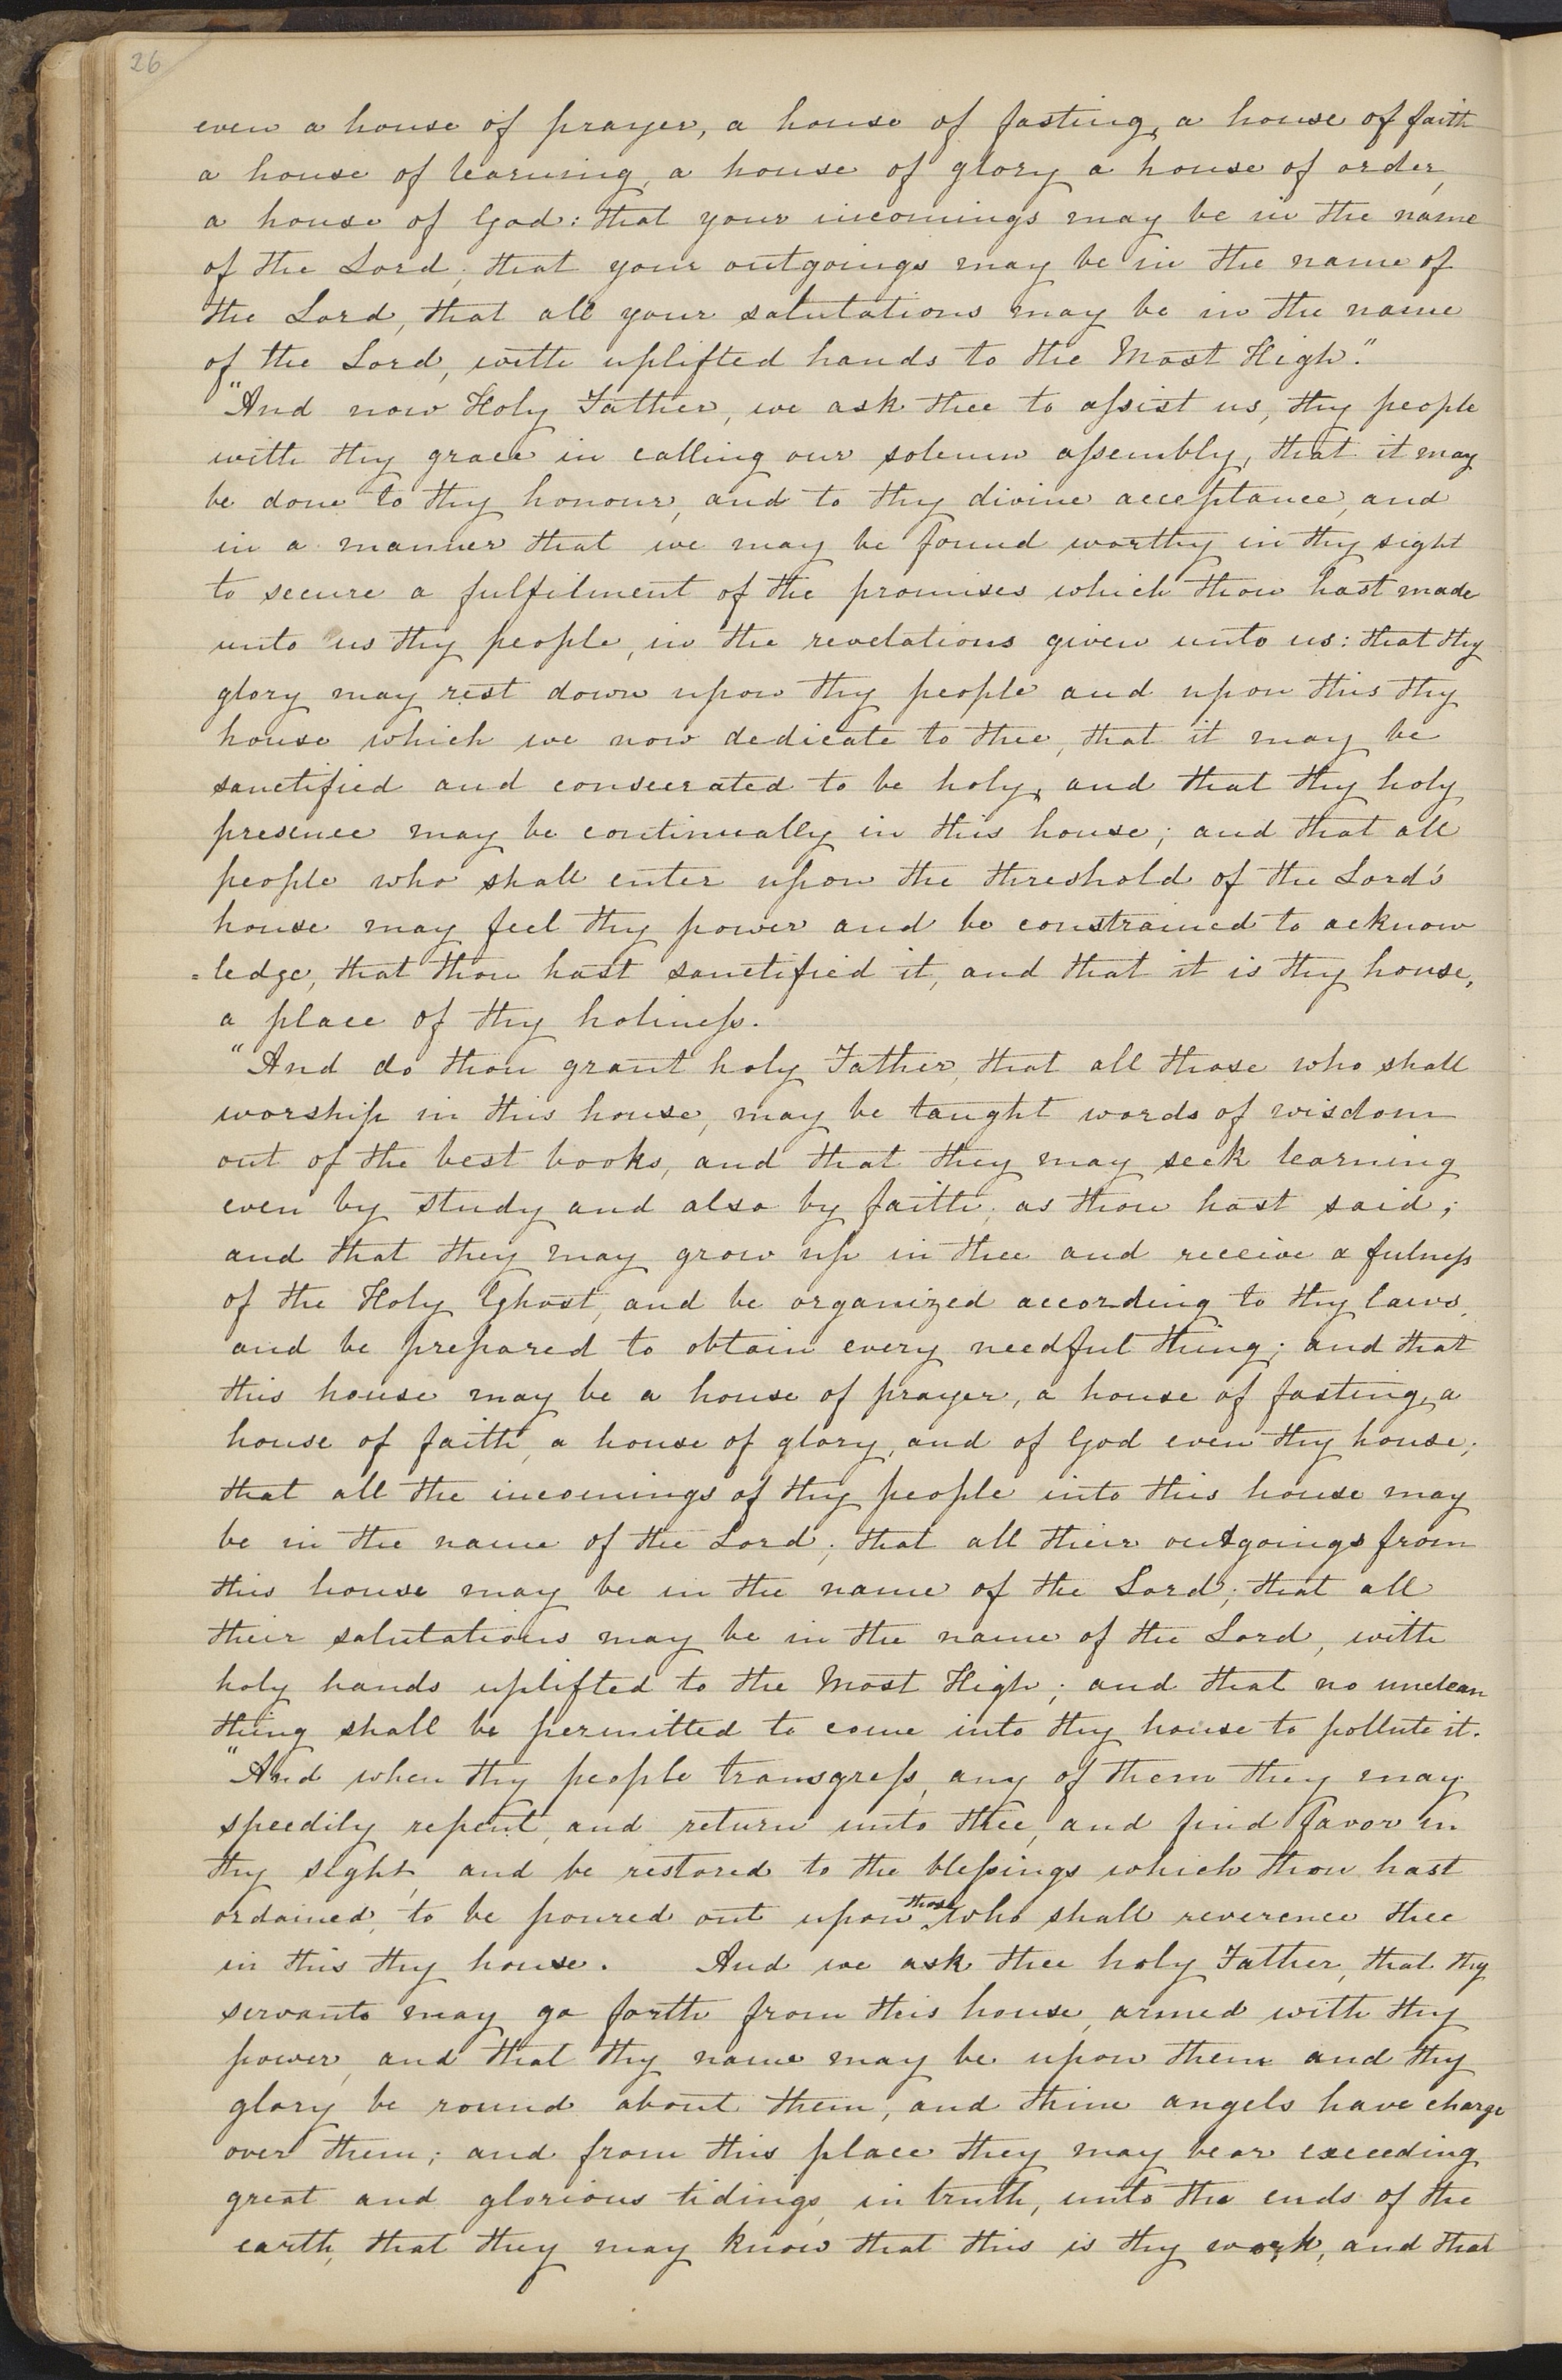 26
even a house of prayer, a house of fasting, a house of faith
a house of learning, a house of glory a house of order,
a house of God: that your incomings may be in the name
of the Lord; that your outgoings may be in the name of
the Lord, that all your salutations may be in the name
of the Lord, with uplifted hands to the Most High."
"And now Holy Father, we ask thee to assist us, thy people
with thy grace in calling our solemn assembly, that it may
be done to thy honour, and to thy divine acceptance, and
in a manner that we may be found worthy in thy sight
to secure a fulfilment of the promises which thou hast made
unto us thy people, in the revelations given unto us: that thy
glory may rest down upon thy people and upon this thy
house which we now dedicate to thee, that it may be
sanctified and consecrated to be holy, and that thy holy
presence may be continually in this house; and that all
people who shall enter upon the threshold of the Lord's
house may feel thy power and be constrained to acknow
=ledge, that thou hast sanctified it, and that it is thy house,
a place of thy holiness.
"And do thou grant holy Father, that all those who shall
worship in this house, may be taught words of wisdom
out of the best books, and that they may seek learning
even by study and also by faith; as thou hast said;
and that they may grow up in thee and receive a fulness
of the Holy Ghost, and be organized according to thy laws,
and be prepared to obtain every needful thing; and that
this house may be a house of prayer, a house of fasting, a
house of faith, a house of glory, and of God even thy house;
that all the incomings of thy people into this house may
be in the name of the Lord; that all their outgoings from
this house may be in the name of the Lord; that all
their salutations may be in the name of the Lord, with
holy hands uplifted to the Most High; and that no unclean
thing shall be permitted to come into thy house to pollute it.
"And when thy people transgress, any of them they may
speedily repent, and return unto thee, and find favor in
thy sight, and be restored to the blessings which thou hast
ordained, to be poured out upon those who shall reverence thee
in this thy house. And we ask thee holy Father, that thy
servants may go forth from this house, armed with thy
power, and that thy name may be upon them and thy
glory be round about them, and thine angels have charge
over them; and from this place they may bear exceeding
great and glorious tidings, in truth, unto the ends of the
earth, that they may know that this is thy work, and that